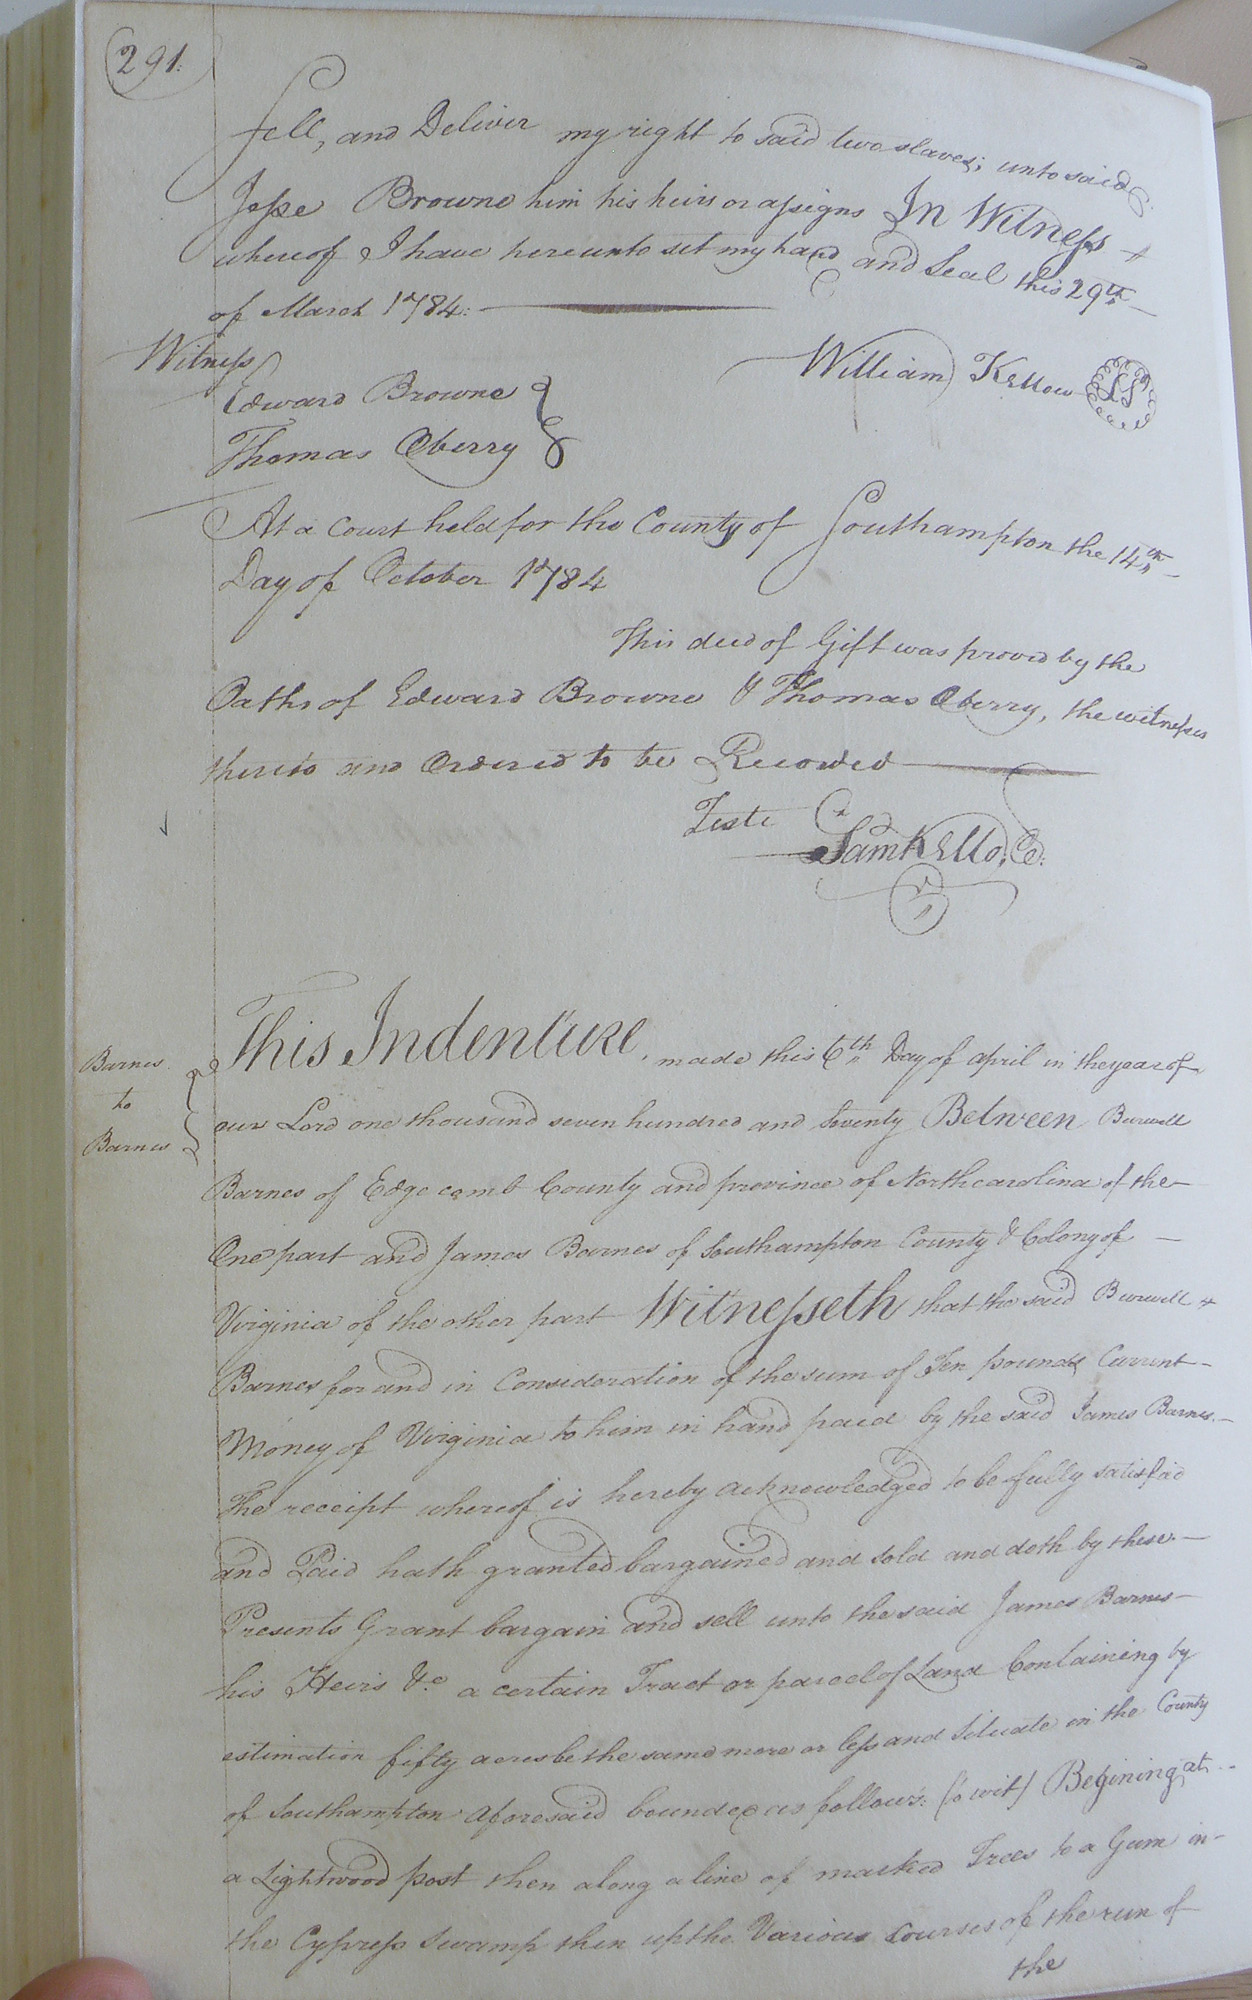 291.
sell, and Deliver my right to said two slaves; unto said
Jesse Browne him his heirs or assigns In Witness
whereof I have hereunto set my hand and Seal this 29th
of March 1784.
Witness
William Kellow LS
Edward Browne
Thomas Oberry
At a Court held for the County of Southampton the 14th
Day of October 1784
This deed of Gift was proved by the
Oaths of Edward Browne & Thomas Oberry, the witnesses
thereto and Ordered to be Recorded
Teste
Sam Kello, C.
This Indenture, made this 6th Day of april in the year of
Barnes
to
Barnes
our Lord one thousand seven hundred and Seventy Between Burwell
Barnes of Edgecomb County and province of Northcarolina of the
One part and James Barnes of Southampton County & Colony of
Virginia of the other part Witnesseth that the said Burwell
Barnes for and in Consideration of the sum of Ten pounds Current
Money of Virginia to him in hand paid by the said James Barnes
The receipt whereof is hereby acknowledged to be fully satisfid
and Paid hath granted bargained and sold and doth by these
Presents Grant bargain and sell unto the said James Barnes
his Heirs &c a certain Tract or parcel of Land Containing by
estimation fifty acres be the same more or less and Situate in the County
of Southampton aforesaid bounded as follows: (to wit) Begining at
a Lightwood post then along a line of marked Trees to a Gum in
the Cypress Swamp then up the Various Courses of the run of
the